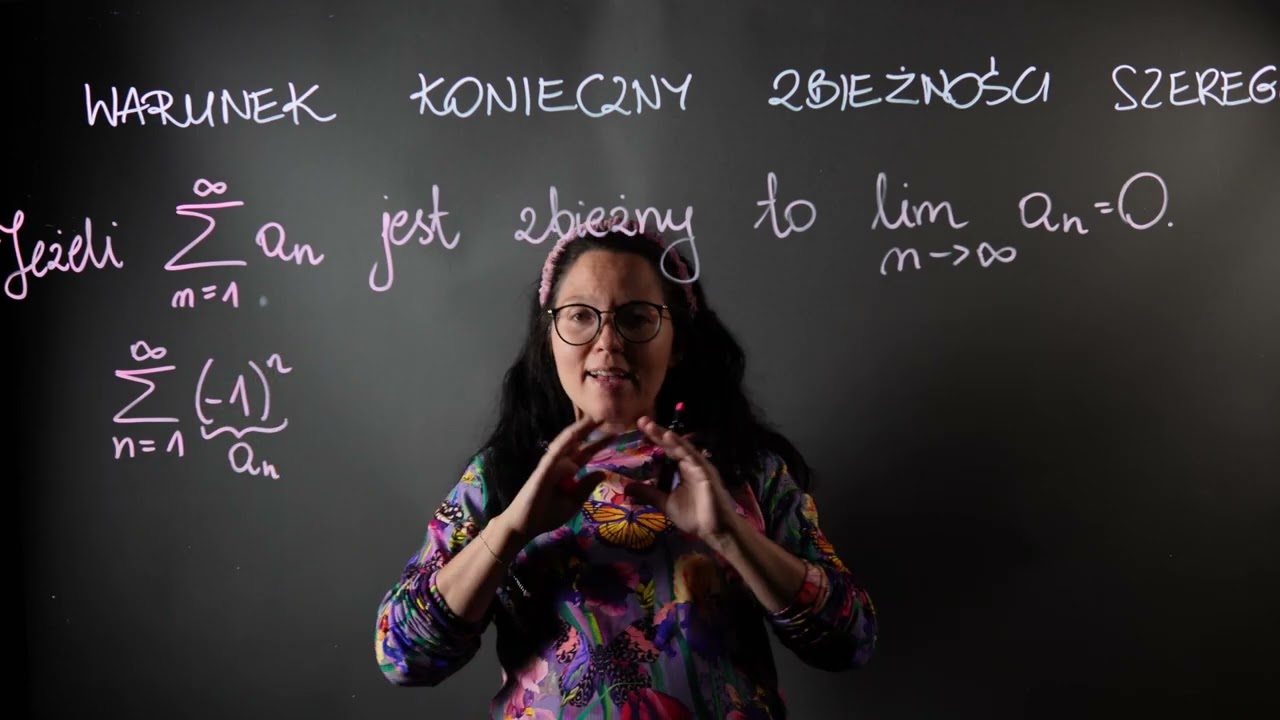 WARUNEK KONIECZNY ZBIEŻNOŚCI SZEREG
Jeżeli ∞∑n=1 aₙ jest zbieżny to lim n→∞ aₙ=0.
∞∑n=1 (-1)ⁿ
aₙ